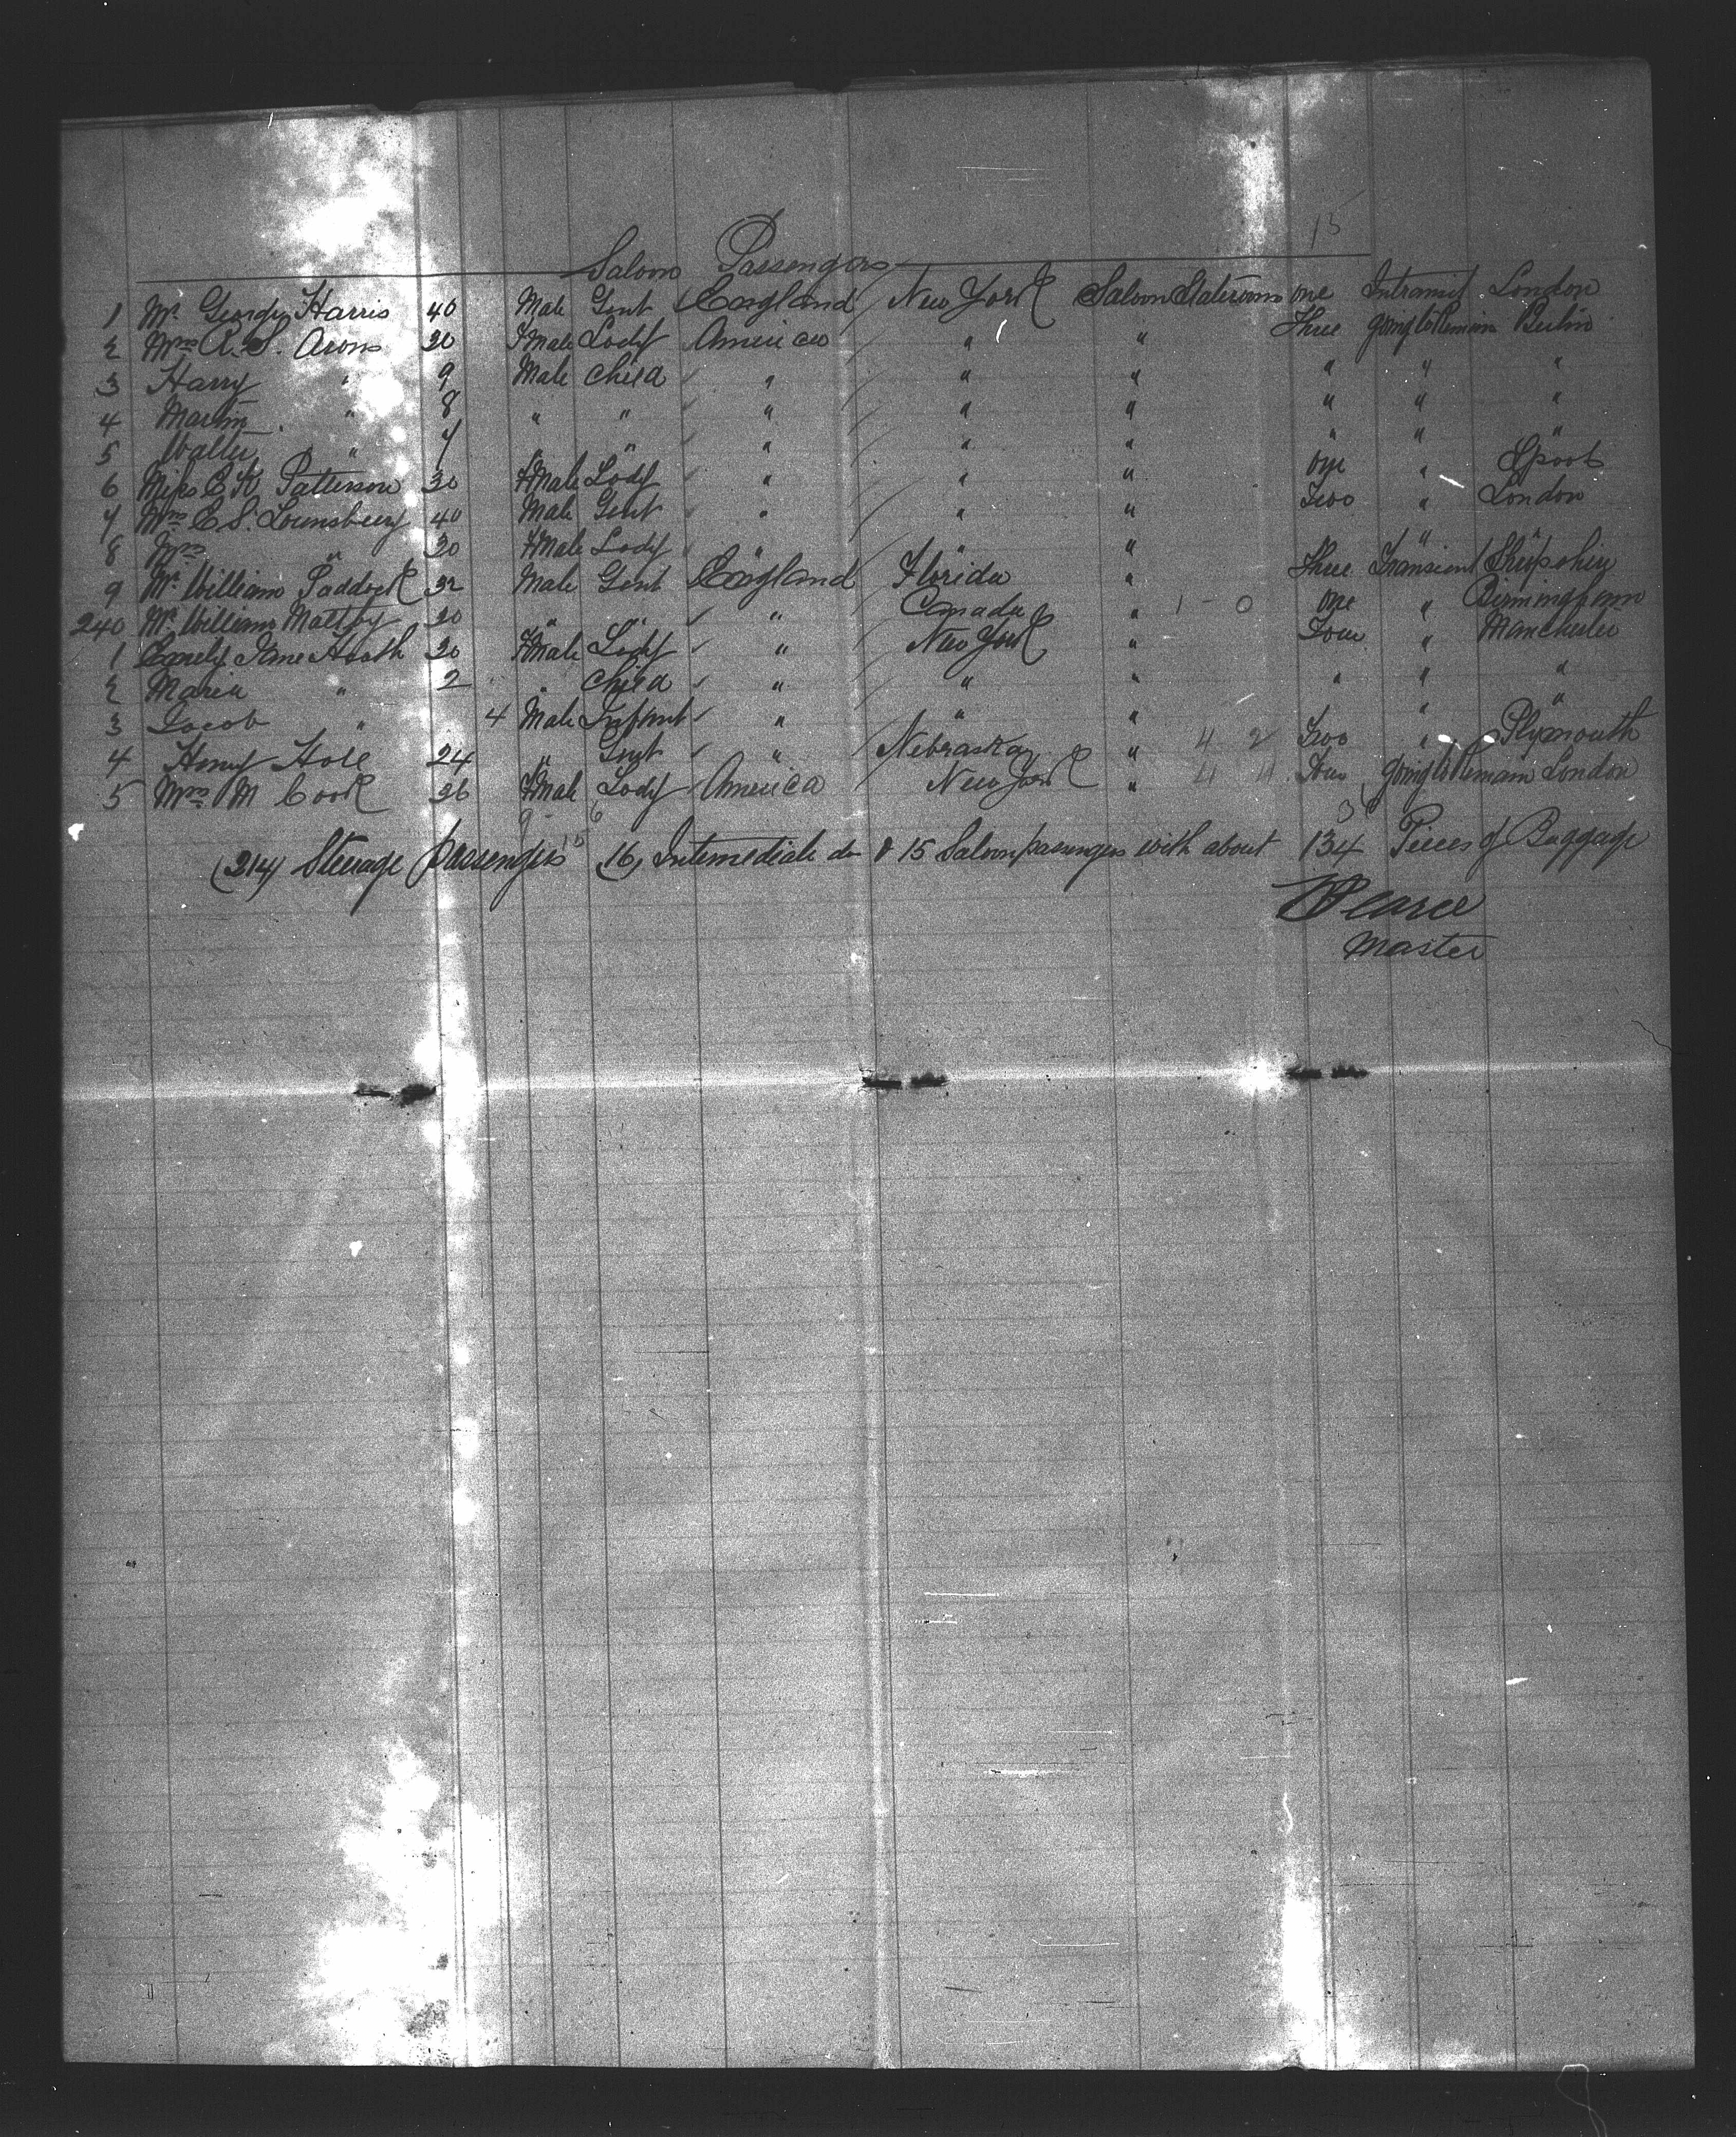 15
Saloon Passengers
1 Mr. George Harris 40 Male Gent England New York Saloon Staterooms one Intransit London
2 Mrs A. S. Arons 30 Fmale Lady America " " Three going to Remain Berlin
3 Harry " 9 Male Child " " " " " "
4 Martin " 8 " " " " " " " "
5 Walter " 7 " " " " " " " "
6 Miss C K Patterson 30 Fmale Lady " " " one "
7 Mrs C S. Lounsbury 40 Male Gent " " " Two " London
8 Mrs " 30 Fmale Lady " " " " "
9 Mr. William Paddock 32 Male Gent England Florida " Three Transient Shropshire
240 Mr. William Maltby 20 " " " Canada " 1 - 0 one " Birmingham
1 Emily Jane Heath 20 Fmale Lady " New York " Four " Manchester
2 Maria " 2 " Child " " " " " "
3 Jacob " 4 Male Infant " " " " "
4 Henry Hole 24 " Gent " Nebraska " 4 2 Two " Plymouth
5 Mrs M Cook 26 Fmale Lady America New York " 4 4 Four going to Remain London
9 6
(214) Steerage passengers 15 16, Intermediate do & 15 Saloon passengers with about 134 Pieces of Baggage
Pearce
Master